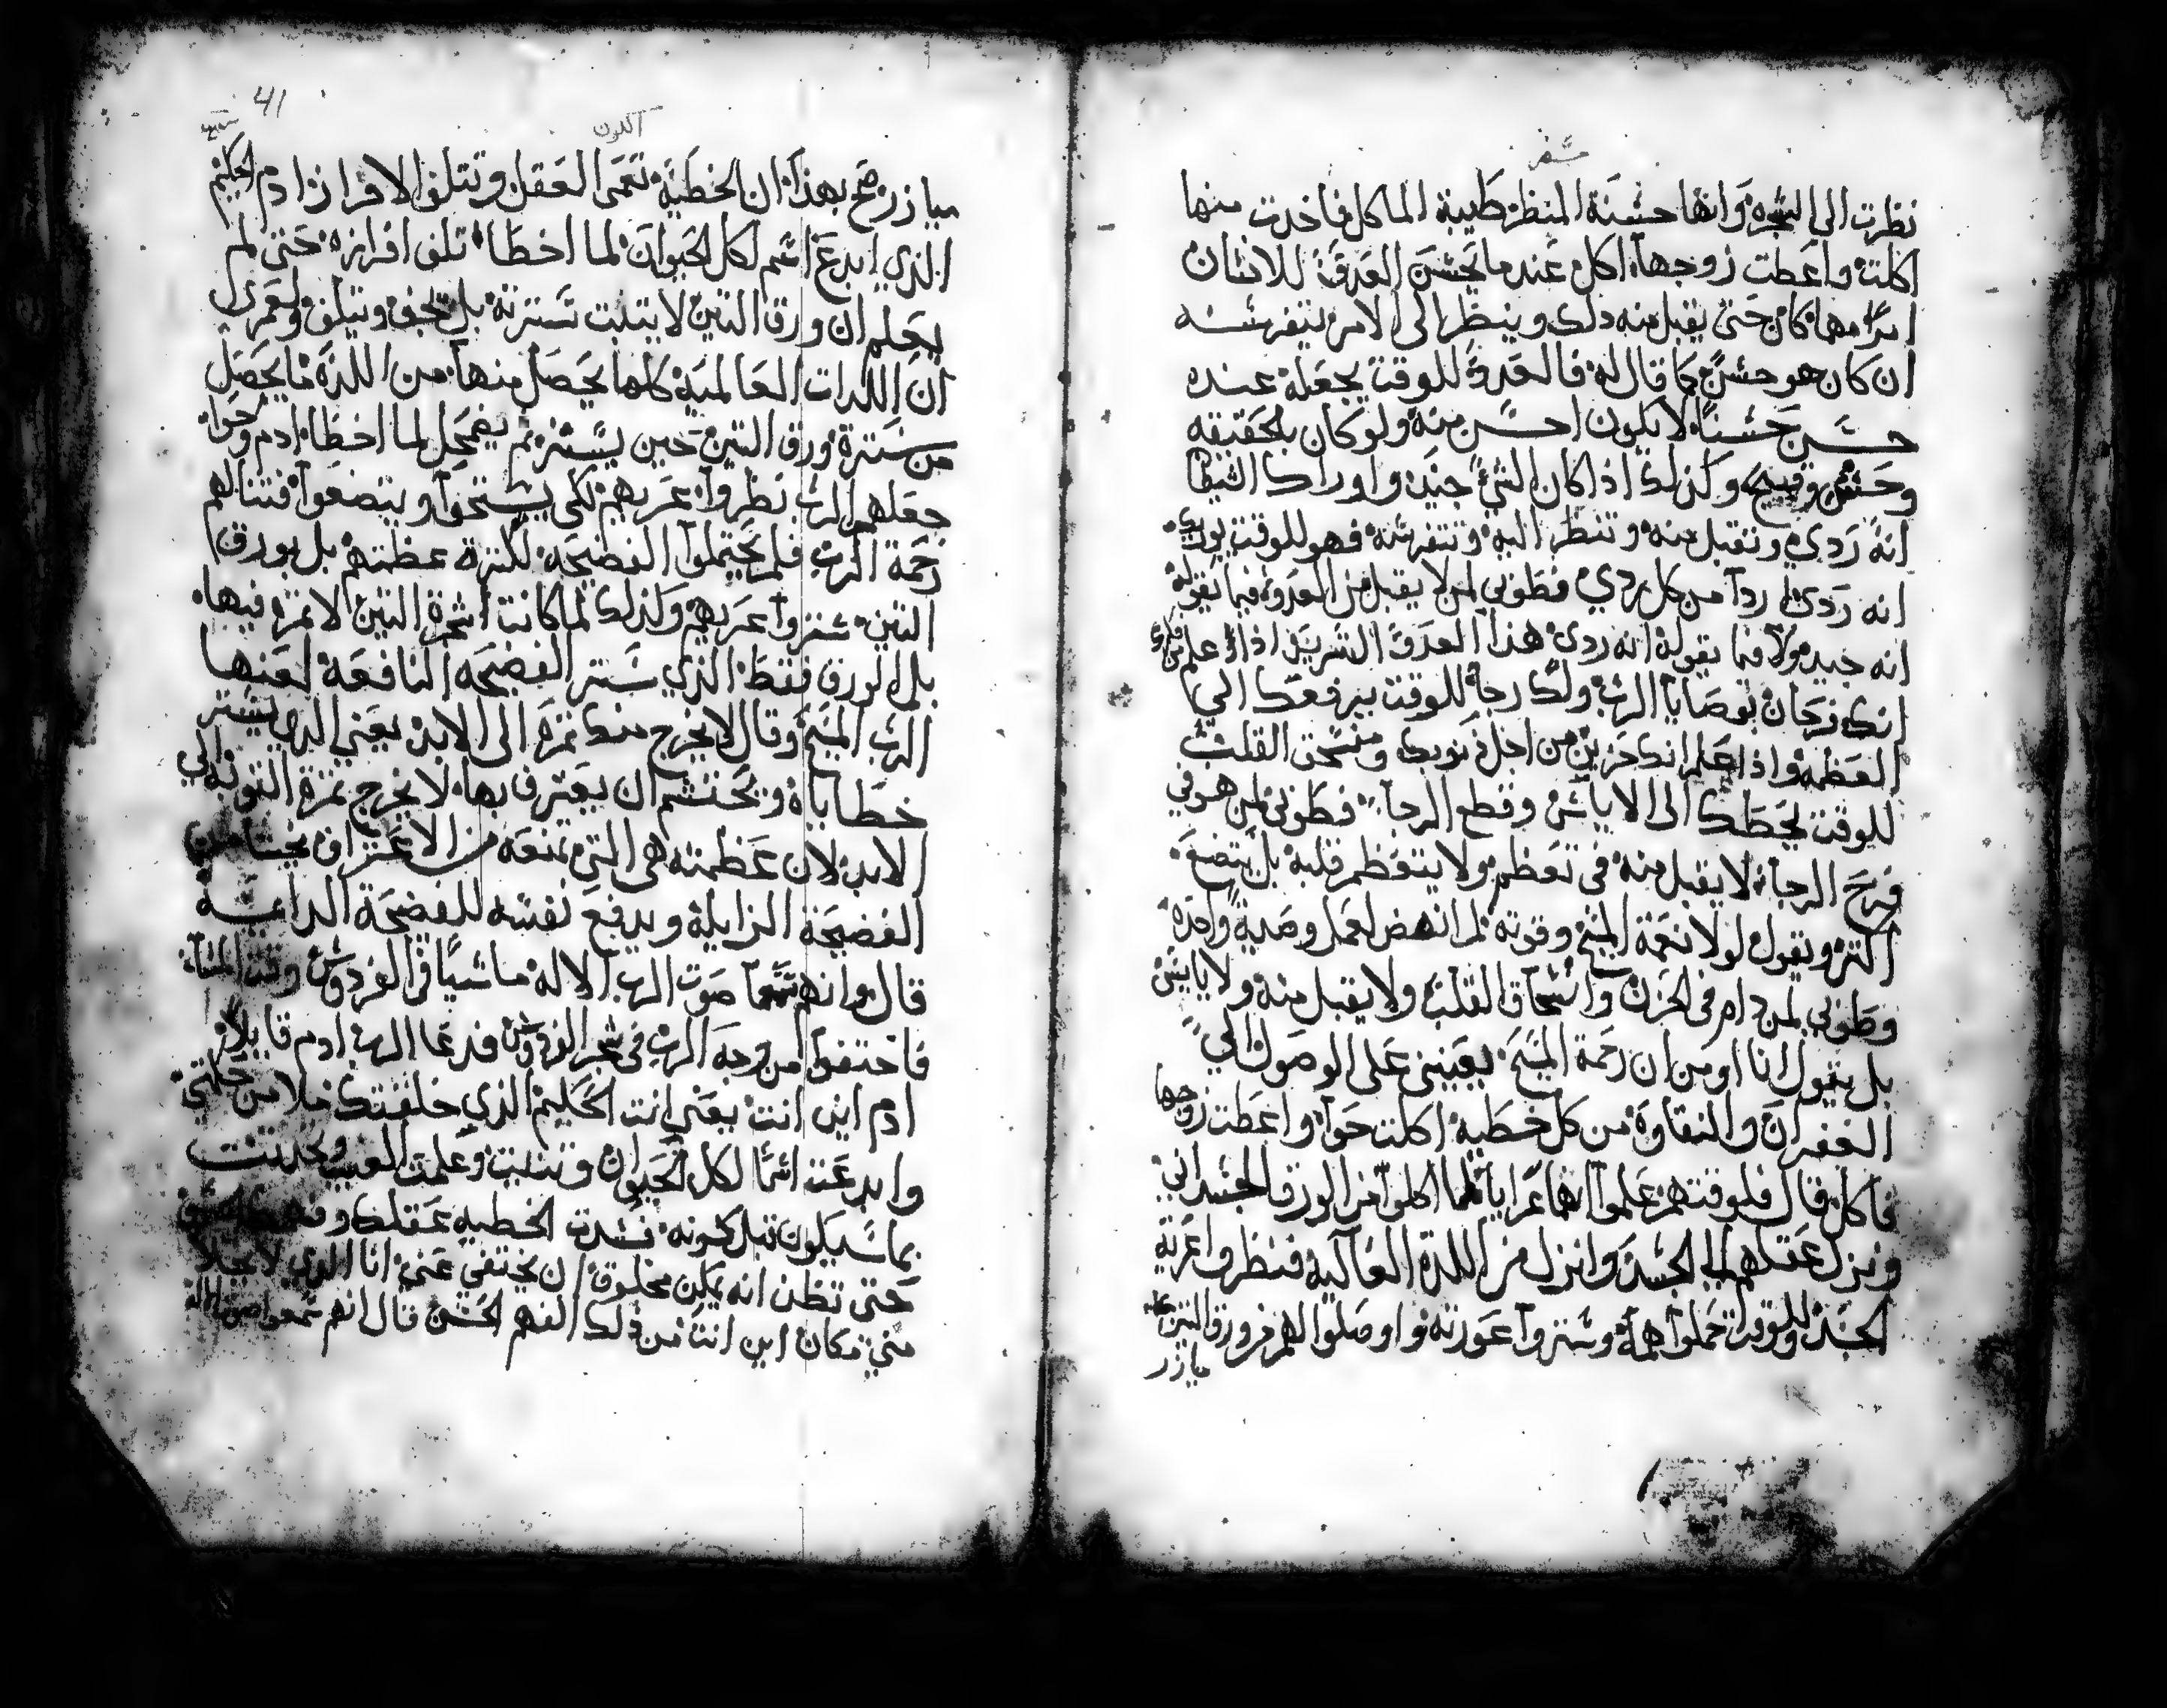 سفر
نظرت الى الشجره وانها حسنة المنظر طيبة الماكل فاخدت منها
اكلت واعطت زوجها اكل عندما يحسن العدو للانسان
امرًا مهما كان حتى يقبل منه دلك وينظر الى الامر بتفرسه
ان كان هو حسن كما قال له فالعدو للوقت يجعله عنده
حسن حسنًا لا يكون احسن منه ولو كان بالحقيقه
وكذلك اذا كان الشي جيد واوراك الشيطا
انه ردي وتقبل منه وتنظر اليه وتتفرسه فهو للوقت
انه ردي اردا من كل ردي فطوبى لمن لا يقبل من العدو فيما يقوله
انه جيد ولا فيما يقوله انه ردي هذا العدو الشرير اذا علم
انك فرحان بوصايا الرب ولك رجا للوقت يرفعك الى
العظمه واذا علم انك حزين من اجل ذنوبك ومنسحق القلب
للوقت يحطك الى الاياس وقطع الرجا فطوبى لمن هو في
فرح الرجا لا يقبل منه في تعظم ولا يتعظم قلبه بل يتضع
اكتر ويقول لولا نعمة المسيح وقوته لم انهض لعمل وصية واحدة
وطوبى لمن دام في الحزن وانسحاق القلب ولا يقبل منه ولا يايس
بل يقول انا اومن ان رحمة المسيح يعينني على الوصول الى
الغفران والنقاوة من كل خطيه اكلت حوا واعطت زوجها
فاكل قال فلوقتهم علموا انهما عرايا لما اكلوا من الورق الجسداني
ونزل عقلهم الى الجسد وانزل من اللذة العاليه فنظروا عرية
الجسد وللوقت حملوا همه وستروا عورته واوصلوا لهم من ورق التين
ميازر
41
اللون
ميازر صح بهذا ان الخطية تعمي العقل وتتلف الافراز ادم الحكيم
الذي ابدع اسم لكل الحيوان لما اخطا تلف افرازه حتى لم
يعلم ان ورق التين لا يتبت تسترته بل يجف ويتلف ولعمري
ان اللدات العالمية كلها يحصل منها من اللذة ما يحصل
من سترة ورق التين حين يستتر ثم يضمحل لما اخطا ادم وحوا
جعلهم الرب نظروا عريهم لكي يستحوا ويتضعوا فتنالهم
رحمة الرب فلم يحتملوا الفضيحه لكترة عظمتهم بل بورق
التين ستروا عريهم ولذلك لما كانت شجرة التين لا تمر فيها
بل الورق فقط الذي ستر الفضيحه النافعة لعنها
الرب المسيح وقال لا يخرج منك تمرة الى الابد يعني الدي يستر
خطاياه ويحتشم ان يعترف بها لا يخرج تمرة التوبه الى
الابد لان عظمته هي التي تمنعه من الاعتراف
الفضيحة الزايلة ويدفع نفسه للفضيحة الدايمة
قال وانهم سمعا صوت الرب الاله ماشيًا في الفردوس وقت المساء
فاختفوا من وجه الرب في شجر الفردوس فدعا الرب ادم قايلا
ادم اين انت يعني انت الحكيم الذي خلقتك من حكمتي
وابدعت اسمًا لكل الحيوان وتنبيت وعلمت الغيب
بما سيكون قبل كونه فسدت الخطيه عقلك
حتى تظن انه يمكن مخلوق ان يختفي عني انا الذي لا يخلا
مني مكان اين انت من ذلك الفهم الحسن قال انهم سمعوا صوت